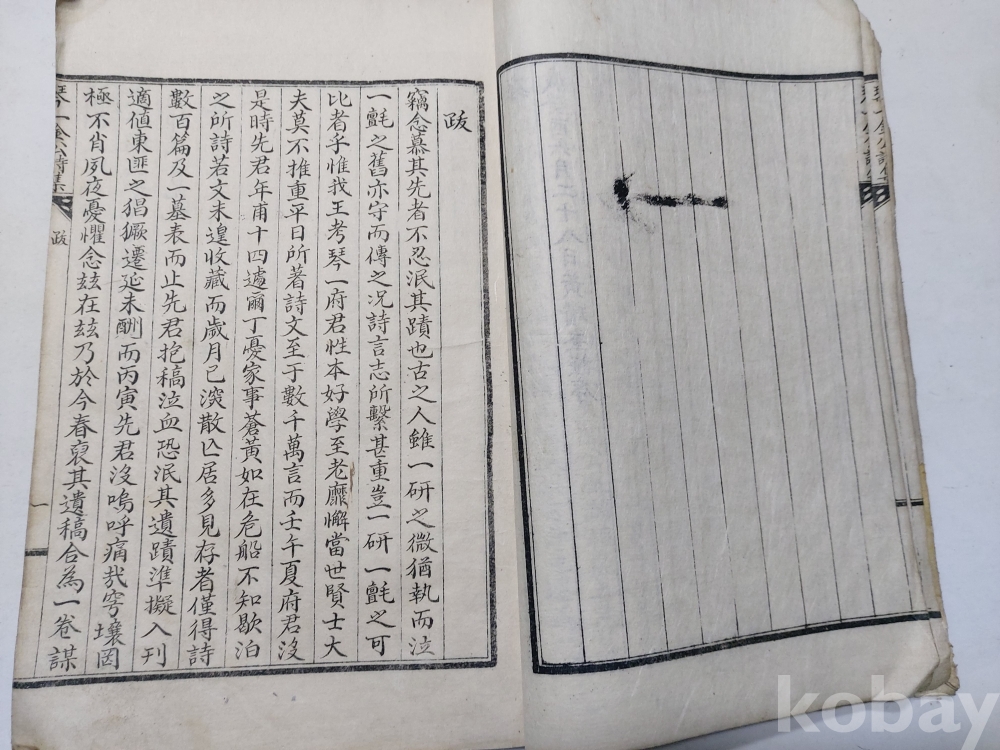 跋
竊念慕其先者不忍泯其蹟也古之人雖一研之微猶執而泣
一氈之舊亦守而傳之况詩言志所繫甚重豈一研一氈之可
比者乎惟我王考琴一府君性本好學至老靡懈當世賢士大
夫莫不推重平日所著詩文至于數千萬言而壬午夏府君沒
是時先君年甫十四遽爾丁憂家事蒼黃如在危船不知歇泊
之所詩若文未遑收藏而歲月已深散亡居多見存者僅得詩
數百篇及一墓表而止先君抱稿泣血恐泯其遺蹟準擬入刊
適值東匪之猖獗遷延未酬而丙寅先君沒嗚呼痛哉穹壤罔
極不肖夙夜憂懼念玆在玆乃於今春裒其遺稿合為一卷謀
跋
一
kobay